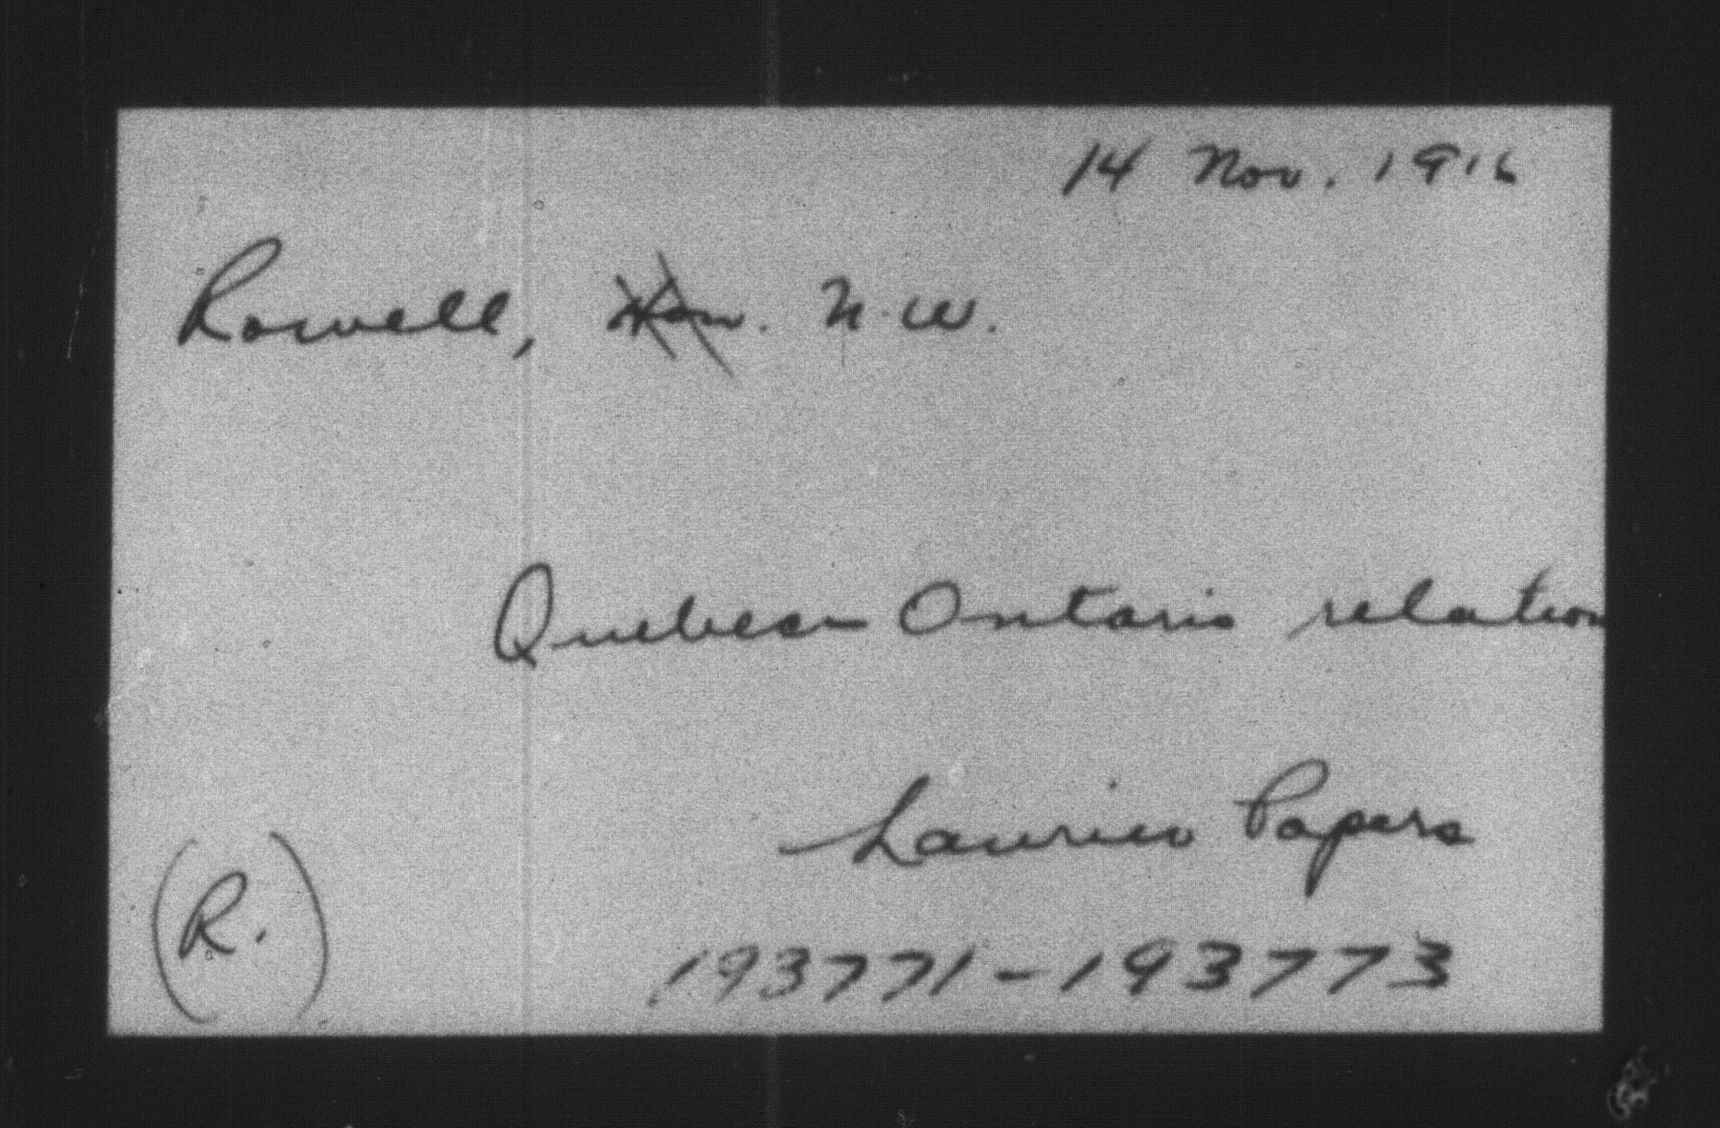 14 Nov. 1916
Rowell, Hon. N.W.
Quebec - Ontario relation
Laurier Papers
(R.)
193771-193773